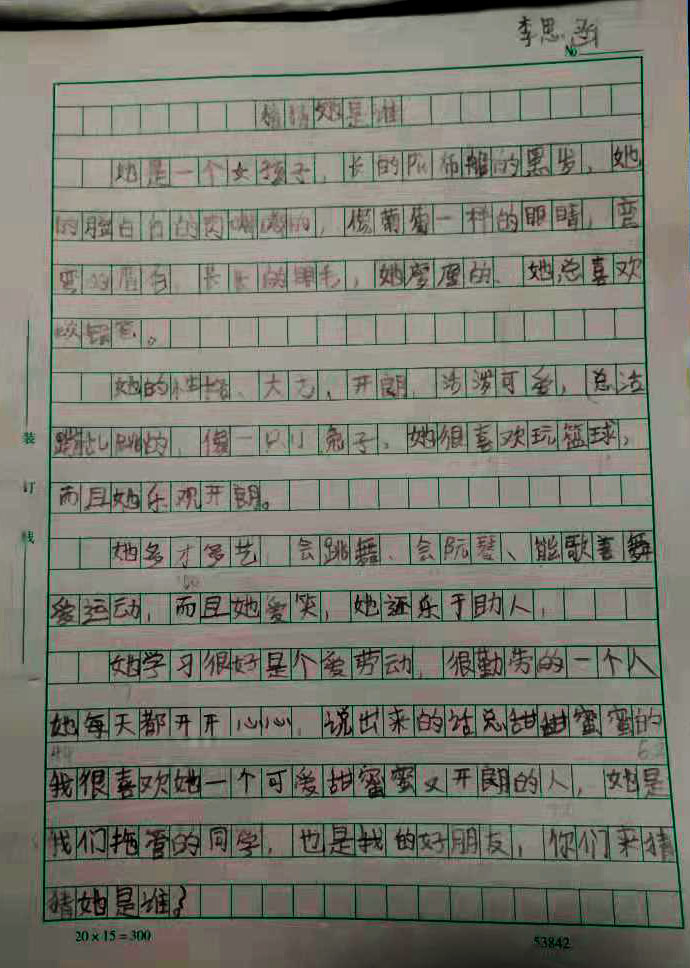 李思
No
猜猜她是谁
她是一个女孩子，长的瀑布般的黑发，她
的脸白白的肉嘟嘟的，像葡萄一样的眼睛，弯
弯的眉毛、长长的睫毛，她瘦瘦的、她总喜欢
咬铅笔。
她的性格、大方，开朗、活泼可爱，总活
蹦乱跳的，像一只小兔子，她很喜欢玩篮球，
而且她乐观开朗。
她多才多艺 会跳舞、会阮琴、能歌善舞
爱运动，而且她爱笑，她还乐于助人，
她学习很好是个爱劳动，很勤劳的一个人
她每天都开开心心，说出来的话总甜甜蜜蜜的
我很喜欢她一个可爱甜蜜蜜又开朗的人，她是
我们 的同学，也是我的好朋友，你们来猜
猜她是谁？
装
订
线
20×15=300
53842